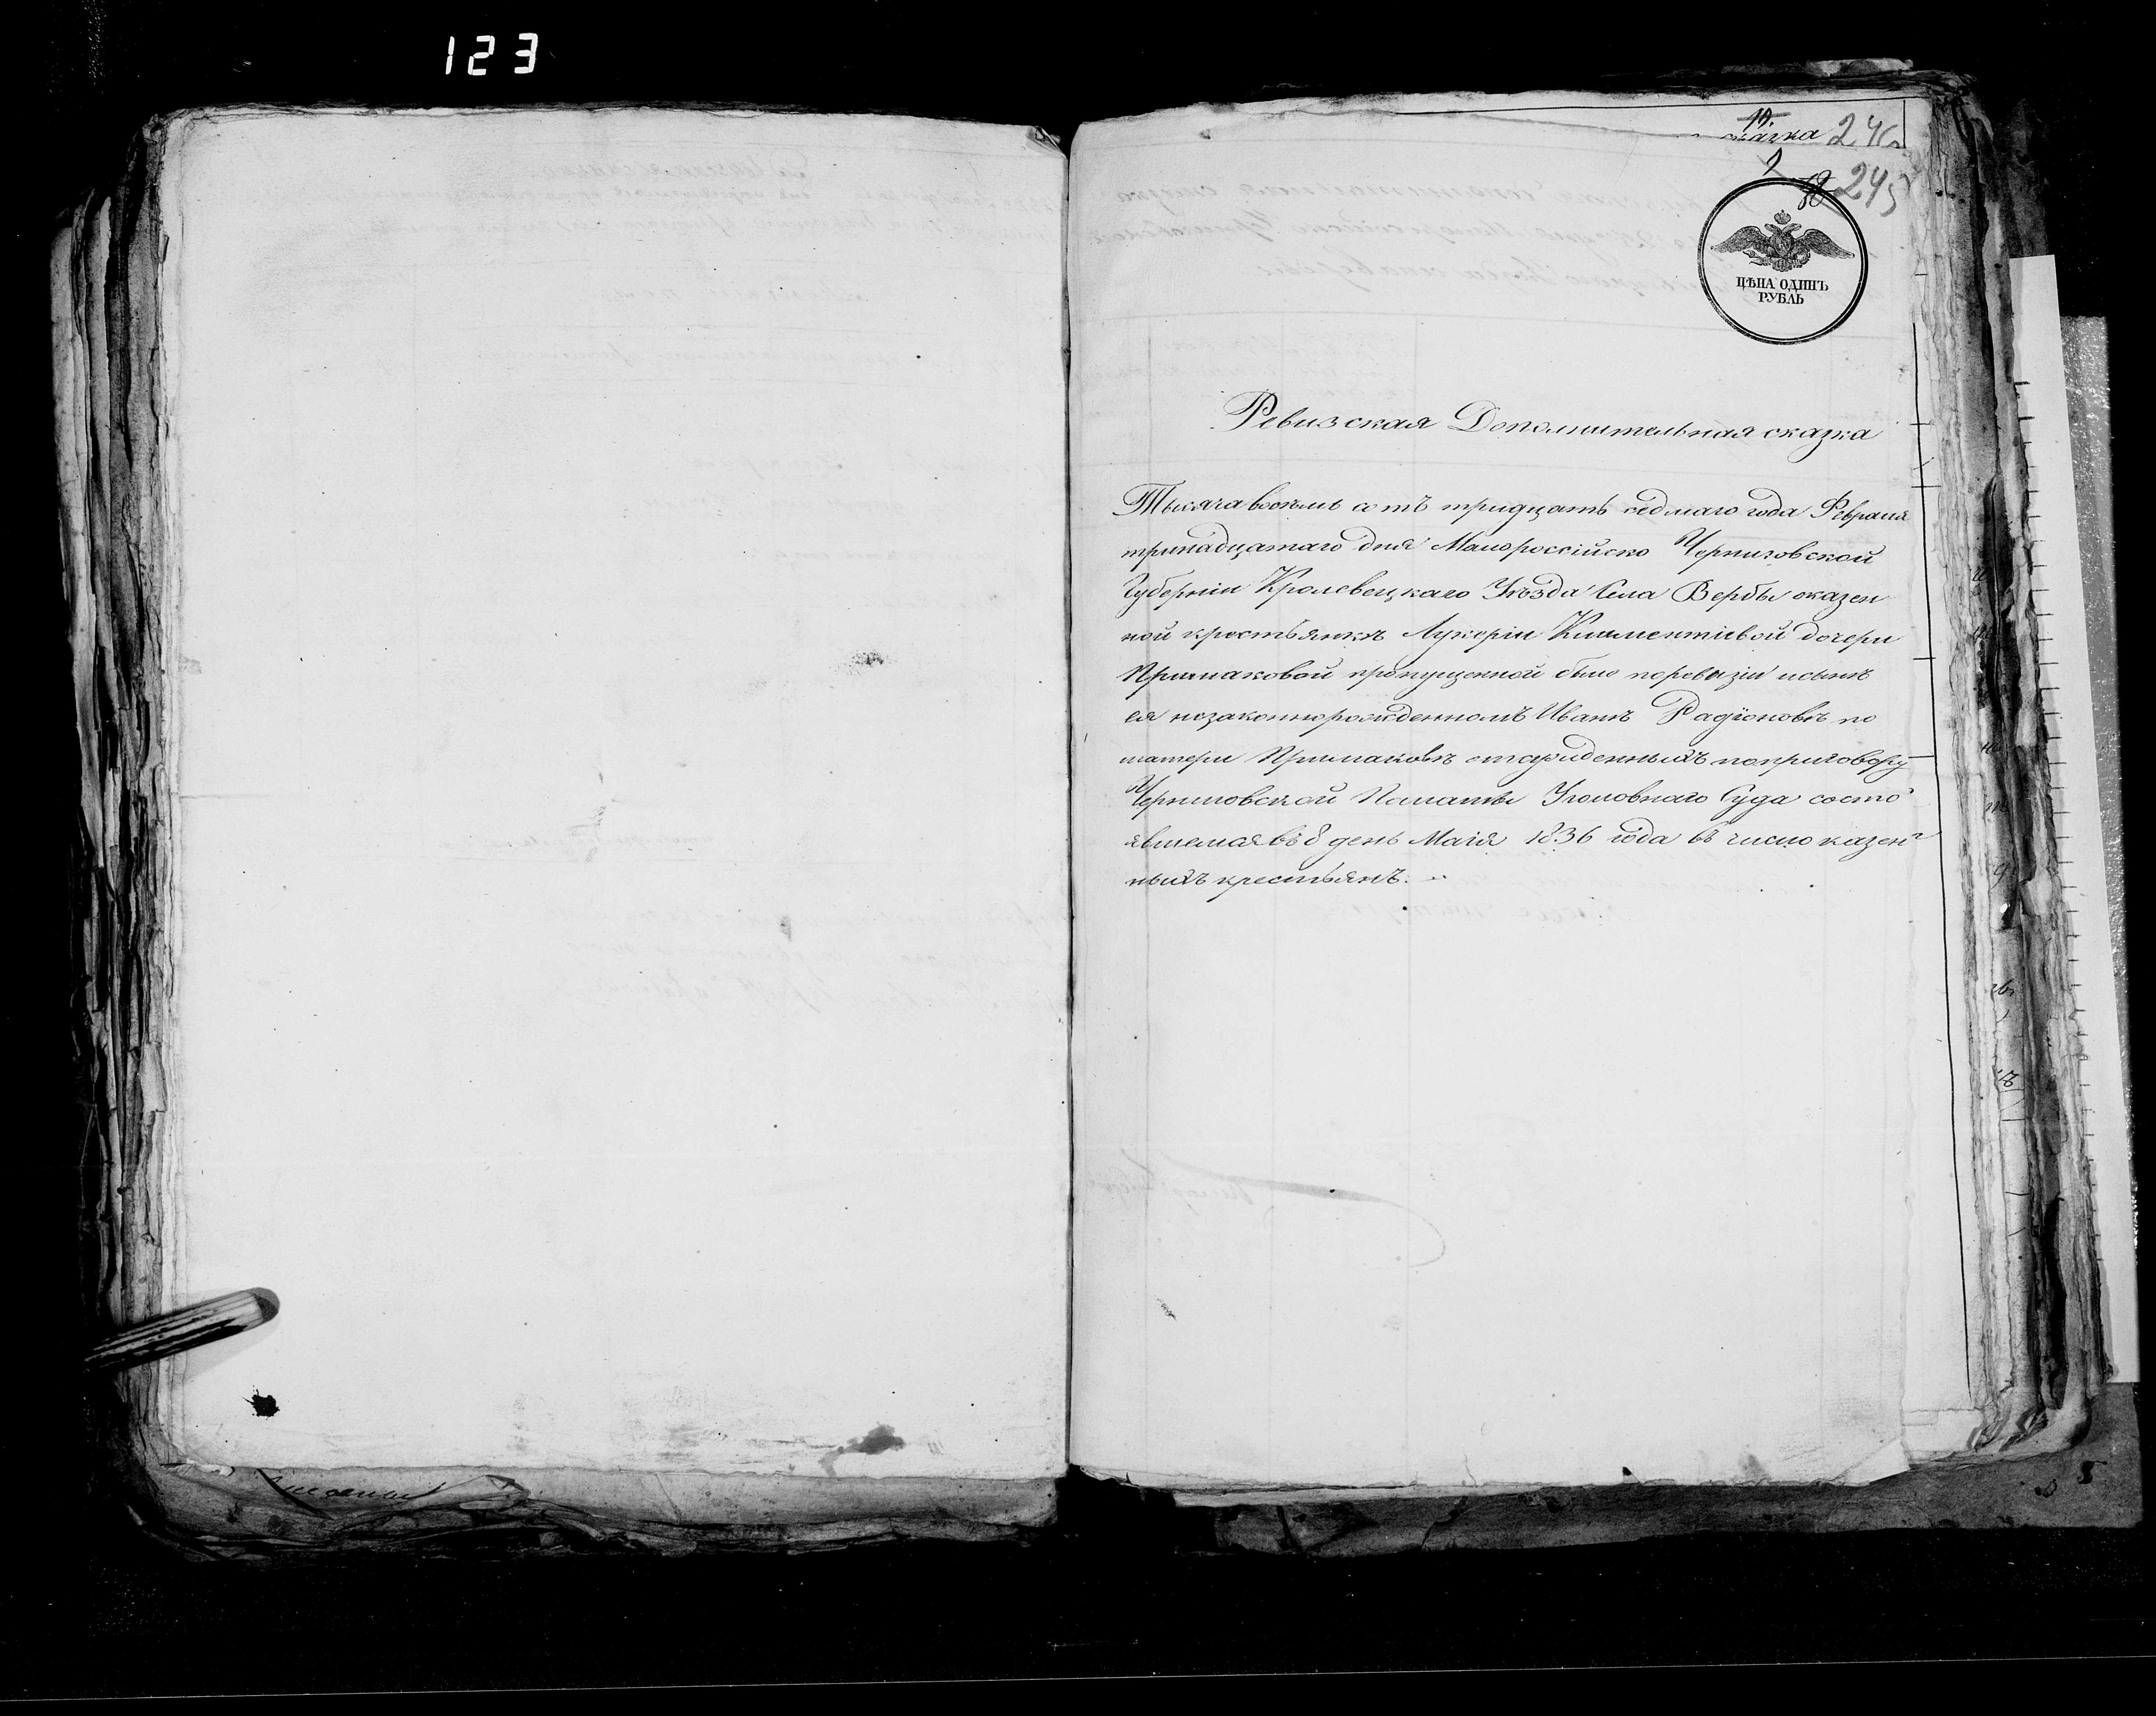 123
19.
сказка 246
2
18 245
ЦѢНА ОДИНЪ
РУБЛЬ
Ревизская Дополнительная сказка
Тысяча восемь сотъ тридцать седмаго года Февраля
тринадцатаго дня Малороссійско Черниговской
Губерніи Кролевецкаго Уѣзда Села Вербы оказен
ной крестьянкѣ Лукеріи Климентіевой дочери
Примаковой пропущенной было поревизіи исынѣ
ея незаконнорожденномъ Иванѣ Радіоновѣ по
матери Примаковѣ отсужденныхъ поприговору
Черниговской Палаты Уголовнаго Суда состо
явшемся въ 8 день Маія 1836 года въ число казен
ныхъ крестьянъ.